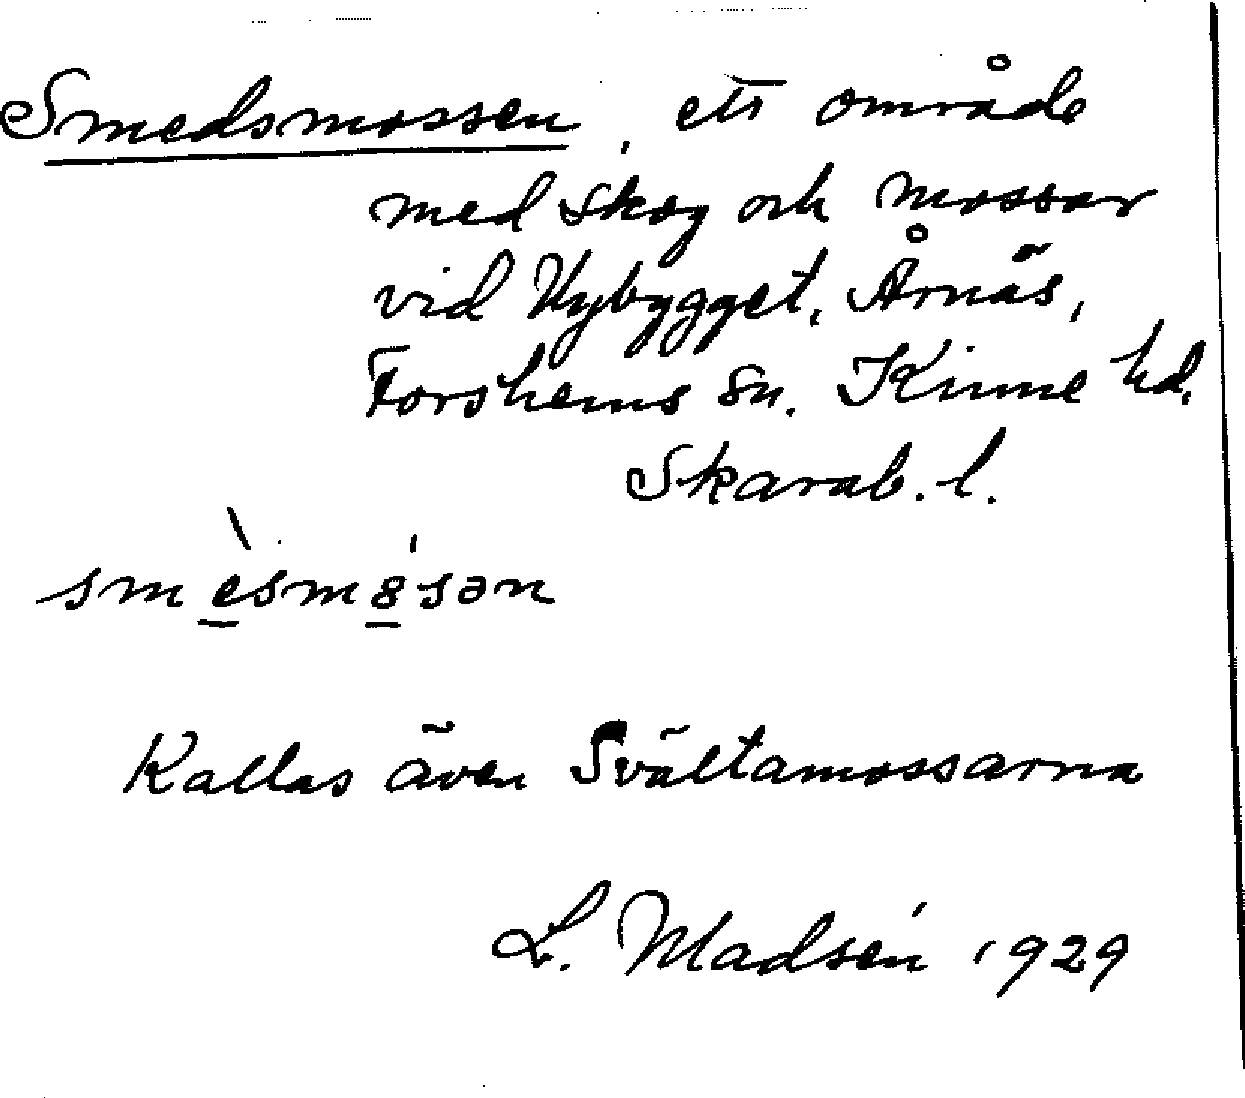 Smedsmossen, ett område
med skog och mossar
vid Nybygget, Årnäs,
Forshems sn. Kinne hd.
Skarab. l.
Kallas även Svältamossarna
L. Madsén 1929